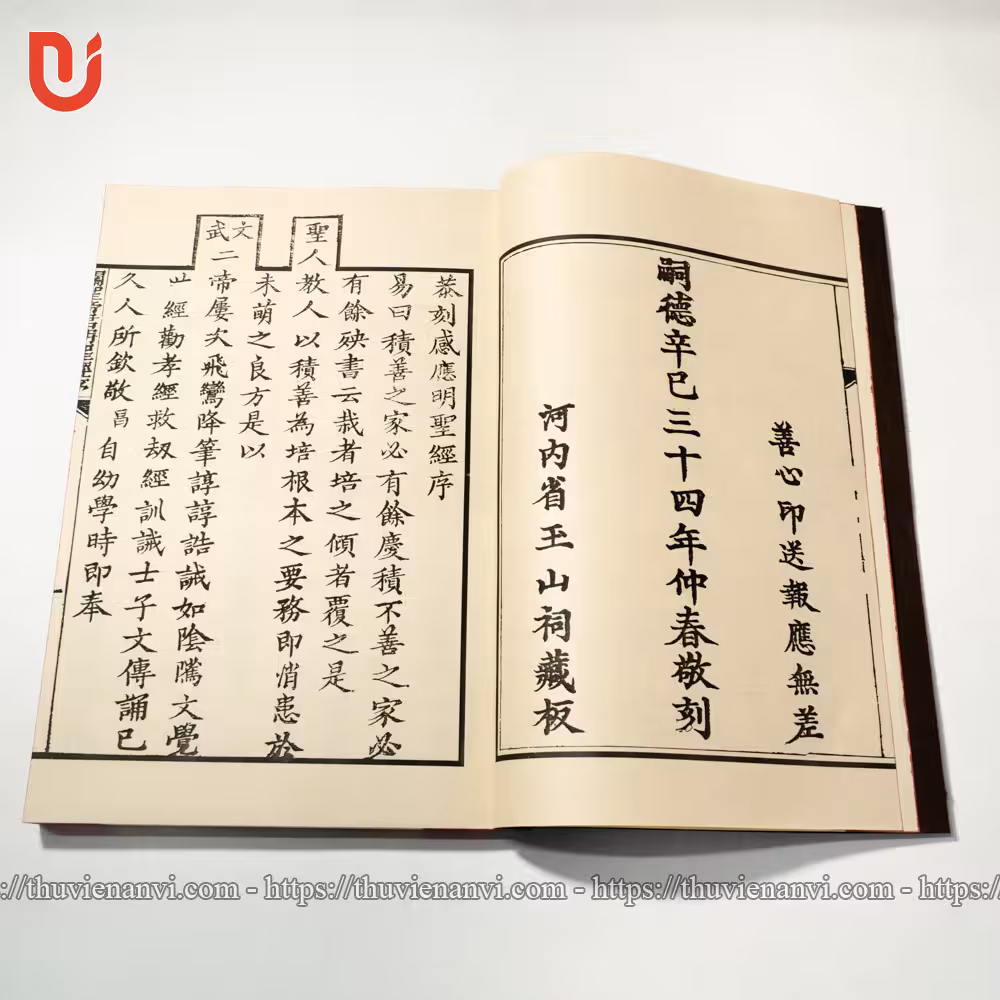 善心印送報應無差
嗣德辛巳三十四年仲春敬刻
河内省玉山祠藏板
恭刻感應明聖經序
易曰積善之家必有餘慶積不善之家必
有餘殃書云栽者培之傾者覆之是
聖人教人以積善為培根本之要務即消患於
未萌之良方是以
文武二帝屡次飛鸞降筆諄諄誥誡如陰隲文覺
世經勸孝經救刼經訓誡士子文傳誦已
久人所欽敬昌自幼學時即奉
://thuvienanvi.com - https://thuvienanvi.com - https://thuvienanvi.com - https:/